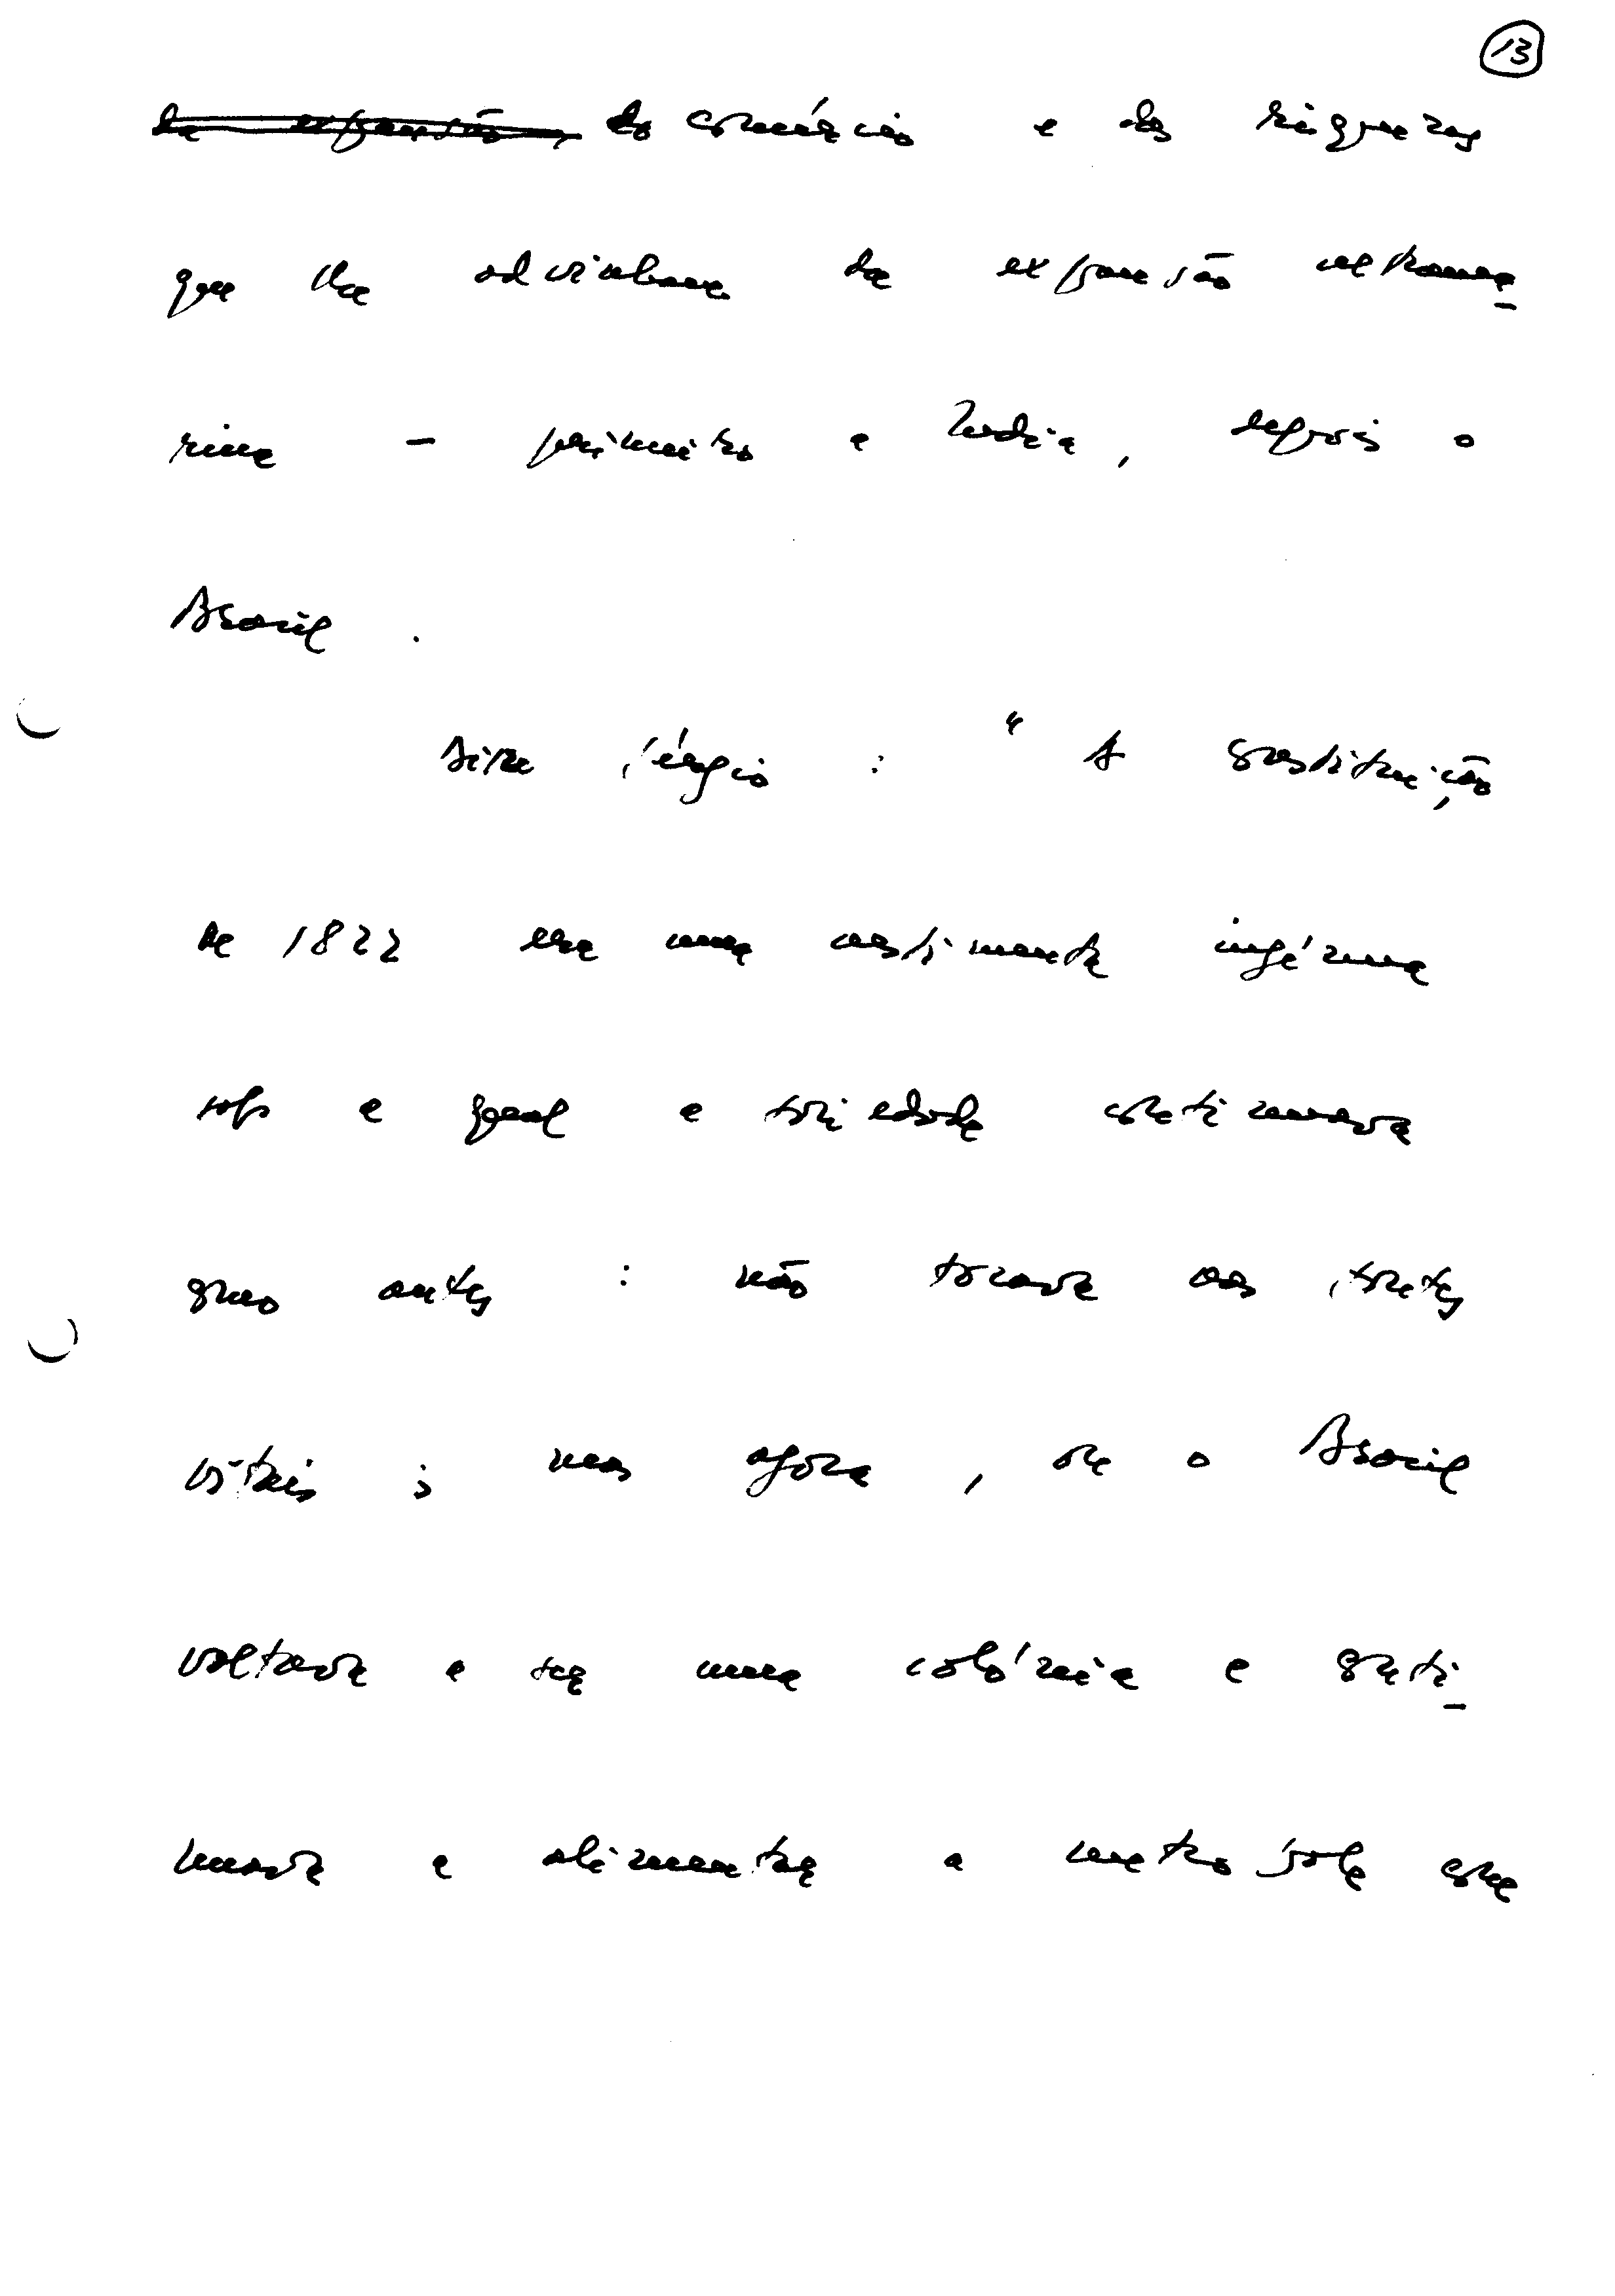 13
da expansão do comércio e das riquezas
que lhe advinham da expansão ultrama-
rina - primeiro a Índia, depois o
Brasil.
Dirá Sérgio: "A Constituição
de 1822 era uma vestimenta ingénua
sob a qual a sociedade continuava
como antes: não tocava aos pontos
vitais; mas agora, ou o Brasil
voltava a ser uma colónia e conti-
nuava a alimentar a metrópole com